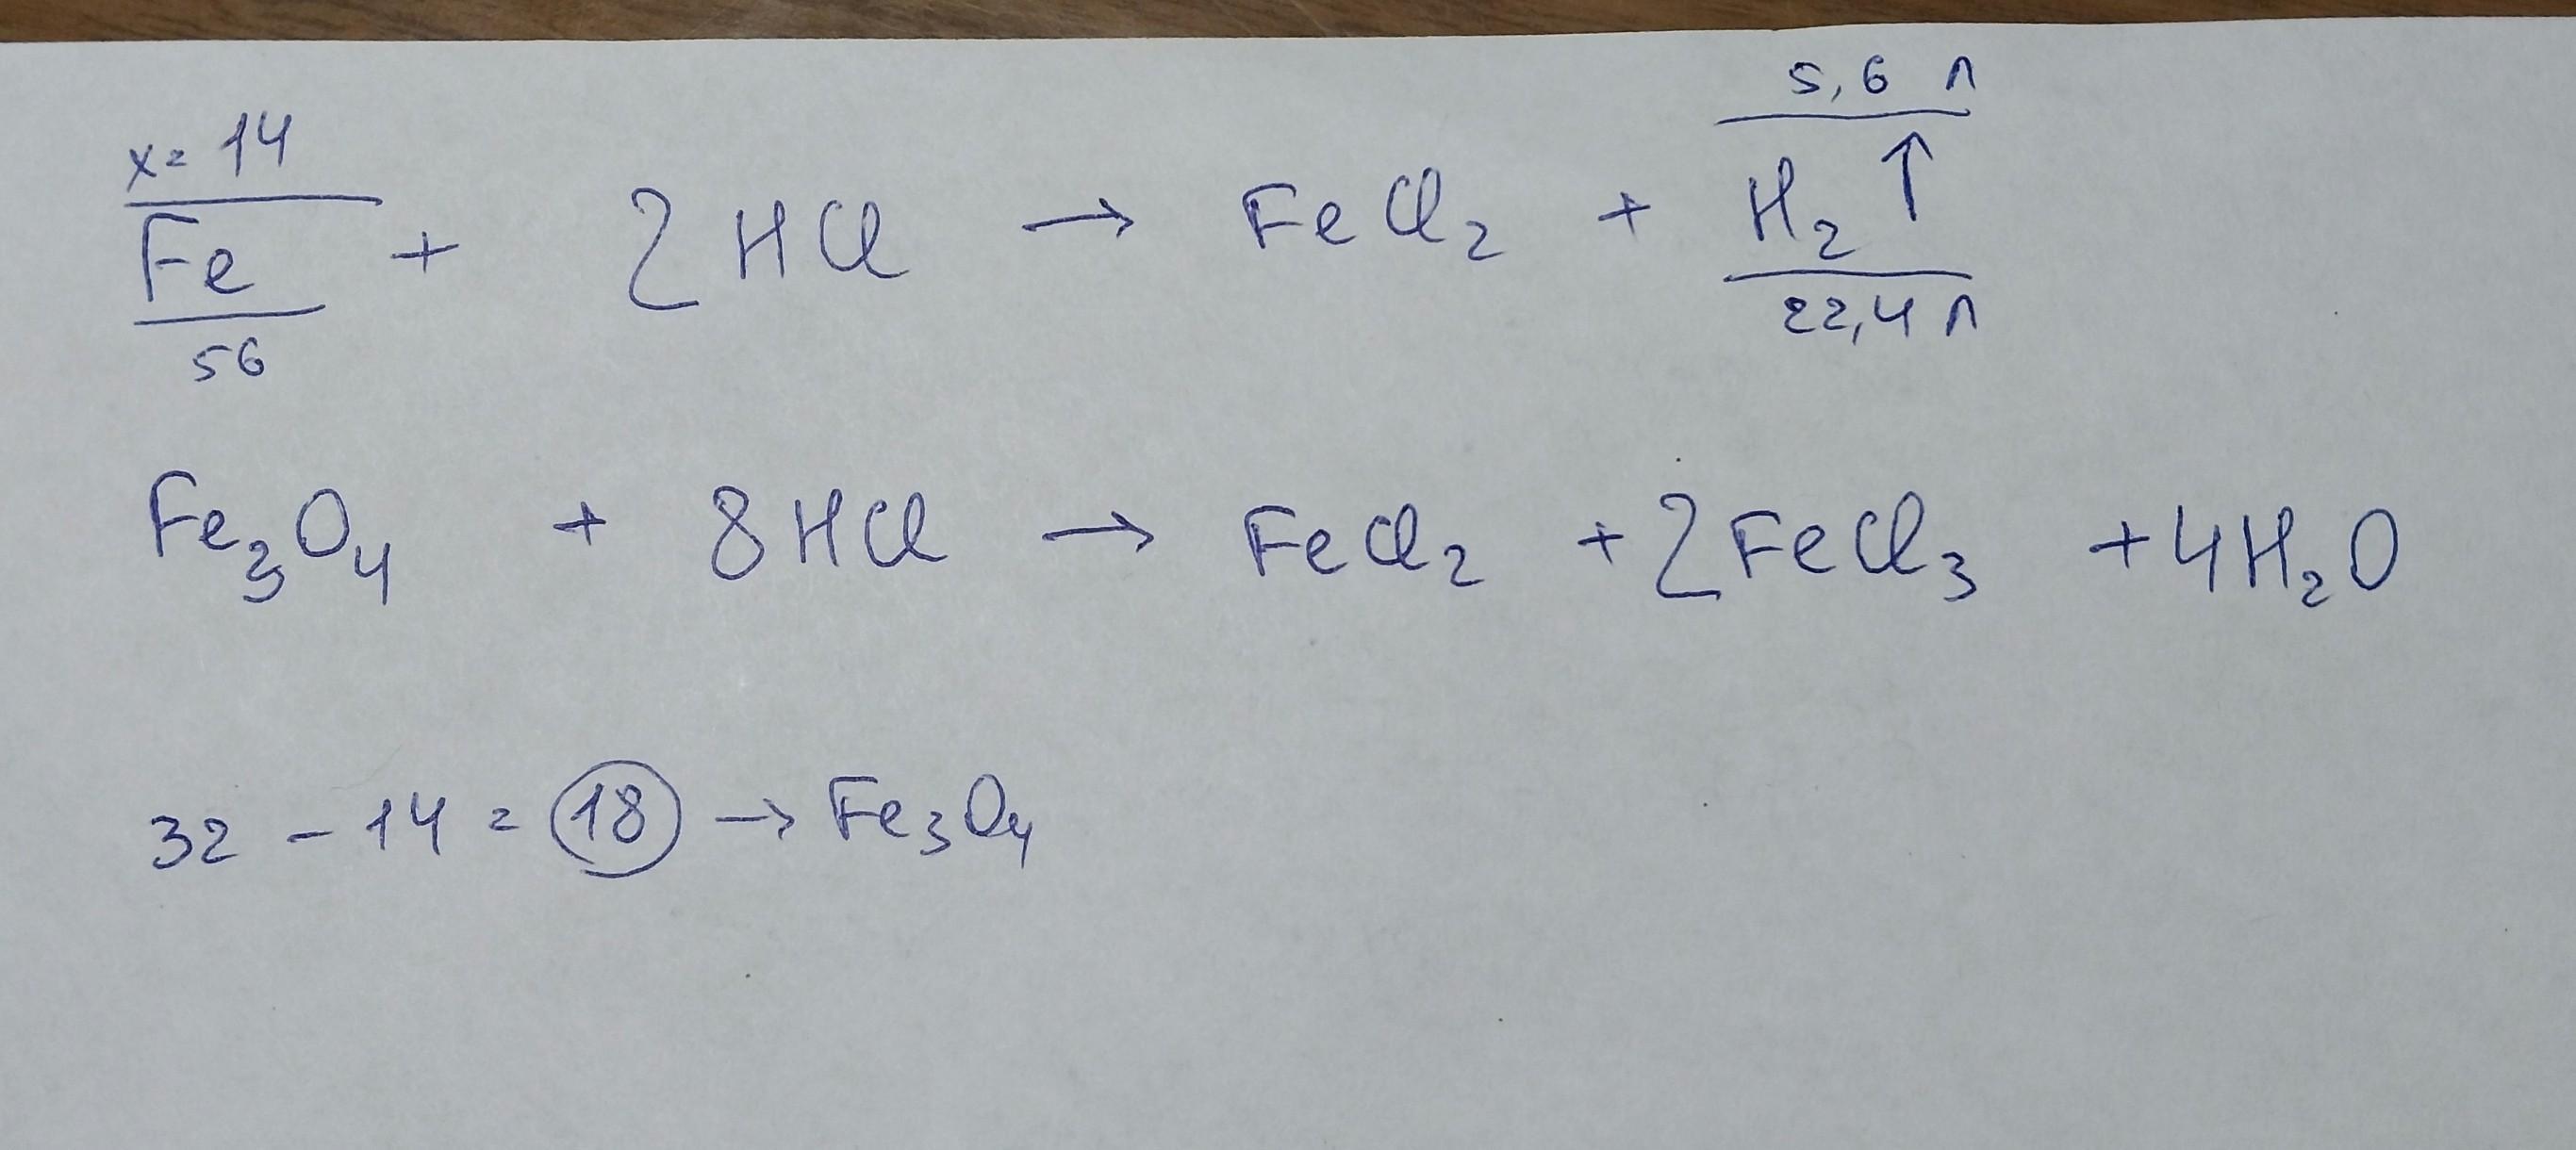 5,6 л
x = 14
Fe + 2HCl → FeCl₂ + H₂ ↑
56
22,4 л
Fe₃O₄ + 8HCl → FeCl₂ + 2FeCl₃ + 4H₂O
32 - 14 = 18 → Fe₃O₄